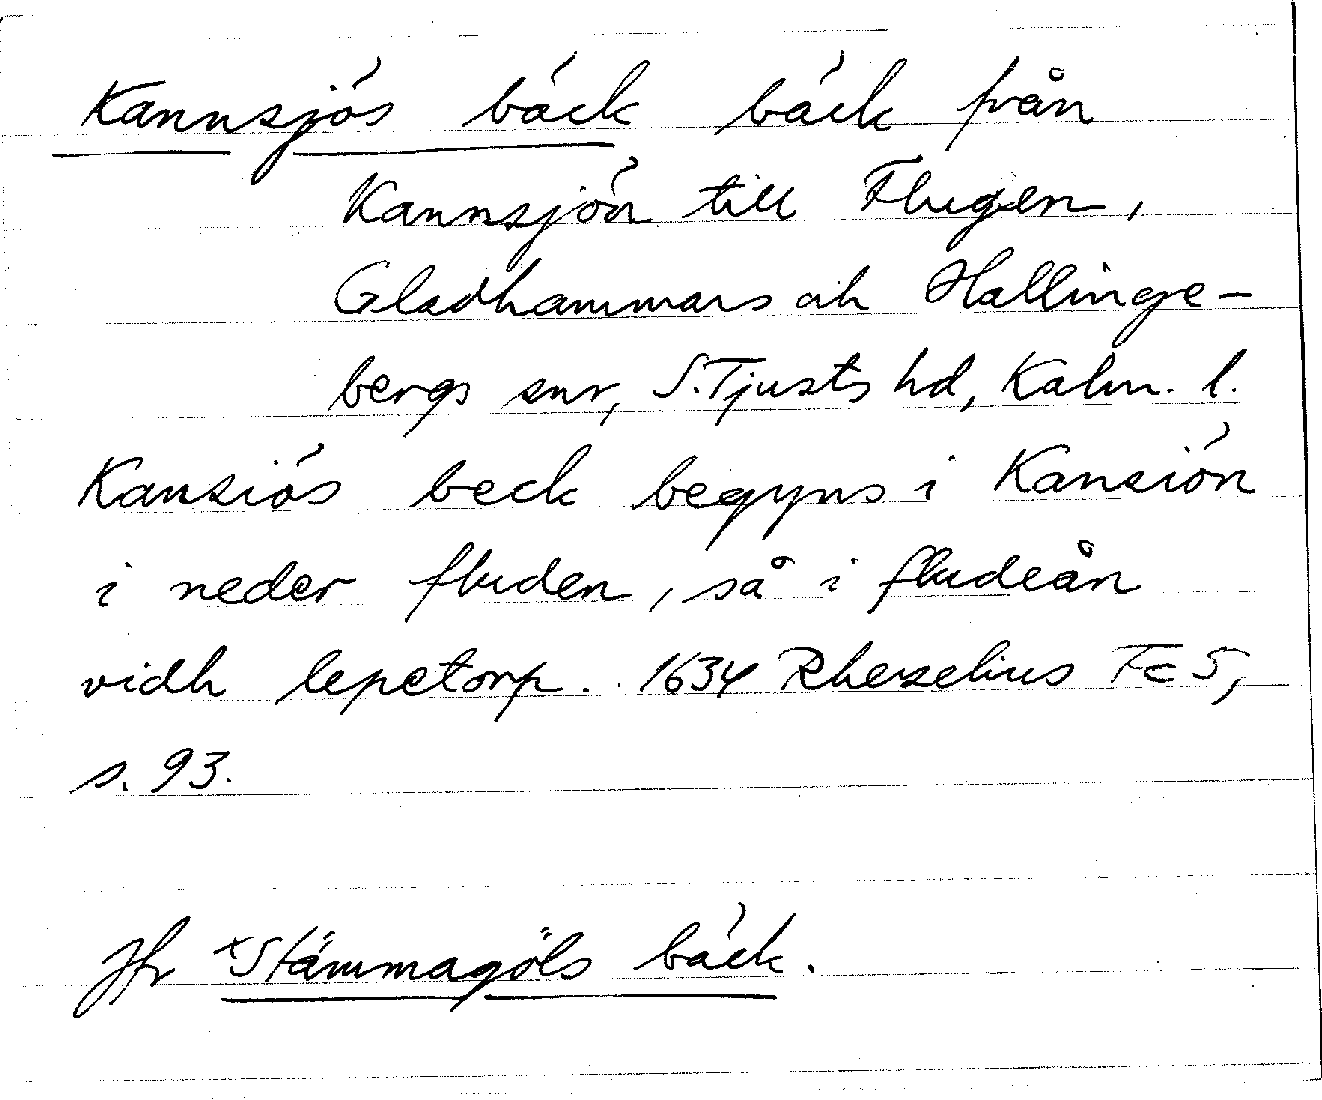 Kannsjös bäck bäck från
Kannsjön till Flugen,
Gladhammars och Hallinge-
bergs snr, S. Tjusts hd, Kalm. l.
Kansiös beck begyns i Kansiön
i neder fluden, så i fludeån
vidh lepetorp. 1634 Rhezelius Fc 5,
s. 93.
Jfr *Stämmagöls bäck.